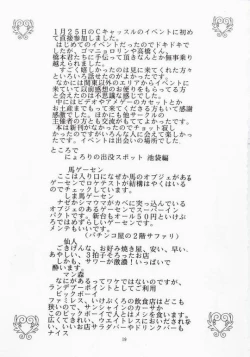 1月25日のCキャッスルのイベントに初め
て直接参加しました。
はじめてのイベントだったのでドキドキで
したが、ゴマニョロリンや高橋くん、
橋本君たちに手伝って頂きなんとか無事乗り
越えられました。
すごく嬉しかったのは見に来てくれた方々
といろいろ話せたのがよかったです。
なかには関東以外のエリアからイベントに
来ていて以前感想のお便りをもらってる方
と会えたのは不思議な感じでした。
中にはビデオやアメゲーのカセットとか
お土産までもって来てくださる方もいて感謝
感激でした。ほかにも他サークルの
主催者の方とも交流がもててよかったです。
本は新刊がなかったのでチョット寂し
かったですがいろんな人に会えて楽しかっ
たです。イベントは出会いの場所でした。
ところで
にょろりの出没スポット 池袋編
馬ゲーセン
ここは入り口になぜか馬のオブジェがある
ゲーセンでロケテストが結構はやくはいる
のでチェックしています。
しま馬ゲーセン
ナゼかシマウマがカベに突っ込んでいる
オブジェのあるゲーセンでスーパーイン
パクトです。新台もオール50円といけぶ
くろではめずらしいゲーセンです。
メンテもいいです。
(パチンコ屋の2階サファリ)
仙人
ごきげんな、お好み焼き屋、安い、早い、
あやしい、3拍子そろったお店
しかも、サワーが激濃!いっぱい
で酔います。
マン森
なにがあるってワケではないのですが、
ランデブーポイントとしてご利用
ビックボーイ
ファミレス、いけぶくろの飲食店はどこも
狭いので、サンシャインのカーサか
このビックボーイで人とはお食事。メシも安
い。広くてきれい、ウエイトレスにお色けがた
ない、いいお店サラダバーやドリンクバーも
ナイス